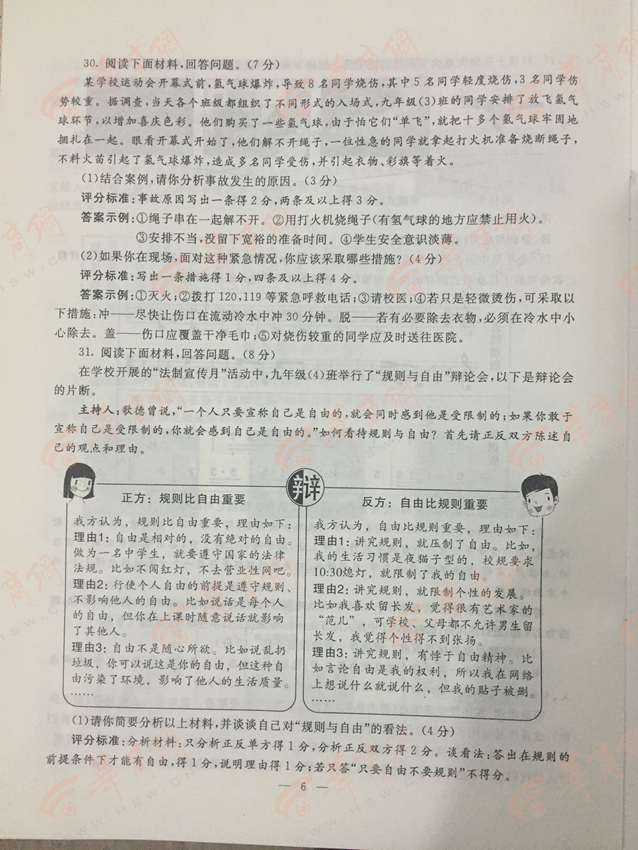 30. 阅读下面材料,回答问题。(7 分)
某学校运动会开幕式前,氢气球爆炸,导致 8 名同学烧伤,其中 5 名同学轻度烧伤,3 名同学伤
势较重。据调查,当天各个班级都组织了不同形式的入场式,九年级(3)班的同学安排了放飞氢气
球环节,以增加喜庆色彩。他们购买了一些氢气球,由于怕它们“单飞”,就把十多个氢气球牢固地
捆扎在一起。眼看开幕式开始了,他们解不开绳子,一位性急的同学就拿起打火机准备烧断绳子,
不料火苗引起了氢气球爆炸,造成多名同学受伤,并引起衣物、彩旗等着火。
(1)结合案例,请你分析事故发生的原因。(3 分)
评分标准:事故原因写出一条得 2 分,两条及以上得 3 分。
答案示例:①绳子串在一起解不开。②用打火机烧绳子(有氢气球的地方应禁止用火)。
③安排不当,没留下宽裕的准备时间。④学生安全意识淡薄。
(2)如果你在现场,面对这种紧急情况,你应该采取哪些措施?(4 分)
评分标准:写出一条措施得 1 分,四条及以上得 4 分。
答案示例:①灭火;②拨打 120、119 等紧急呼救电话;③请校医;④若只是轻微烫伤,可采取以
下措施:冲——尽快让伤口在流动冷水中冲 30 分钟。脱——若有必要除去衣物,必须在冷水中小
心除去。盖——伤口应覆盖干净毛巾;⑤对烧伤较重的同学应及时送往医院。
31. 阅读下面材料,回答问题。(8 分)
在学校开展的“法制宣传月”活动中,九年级(4)班举行了“规则与自由”辩论会,以下是辩论会
的片断。
主持人:歌德曾说,“一个人只要宣称自己是自由的,就会同时感到他是受限制的;如果你敢于
宣称自己是受限制的,你就会感到自己是自由的。”如何看待规则与自由?首先请正反双方陈述自
己的观点和理由。
辩
正方:规则比自由重要
我方认为,规则比自由重要,理由如下:
理由1:自由是相对的,没有绝对的自由。
做为一名中学生,就要遵守国家的法律
法规。比如不闯红灯,不去营业性网吧。
理由2:行使个人自由的前提是遵守规则、
不影响他人的自由。比如说话是每个人
的自由,但你在上课时随意说话就影响
了其他人。
理由3:自由不是随心所欲。比如说乱扔
垃圾,你可以说这是你的自由,但这种自
由污染了环境,影响了他人的生活质量。
……
反方:自由比规则重要
我方认为,自由比规则重要,理由如下:
理由1:讲究规则,就压制了自由。比如,
我的生活习惯是夜猫子型的,校规要求
10:30熄灯,就限制了我的自由。
理由2:讲究规则,就限制个性的发展。
比如我喜欢留长发,觉得很有艺术家的
“范儿”,可学校、父母都不允许男生留
长发,我觉得个性得不到张扬。
理由3:讲究规则,有悖于自由精神。比
如言论自由是我的权利,所以我在网络
上想说什么就说什么,但我的贴子被删。
……
(1)请你简要分析以上材料,并谈谈自己对“规则与自由”的看法。(4 分)
评分标准:分析材料:只分析正反单方得 1 分,分析正反双方得 2 分。谈看法:答出在规则的
前提条件下才能有自由,得 1 分,说明理由得 1 分;若只答“只要自由不要规则”不得分。
— 6 —